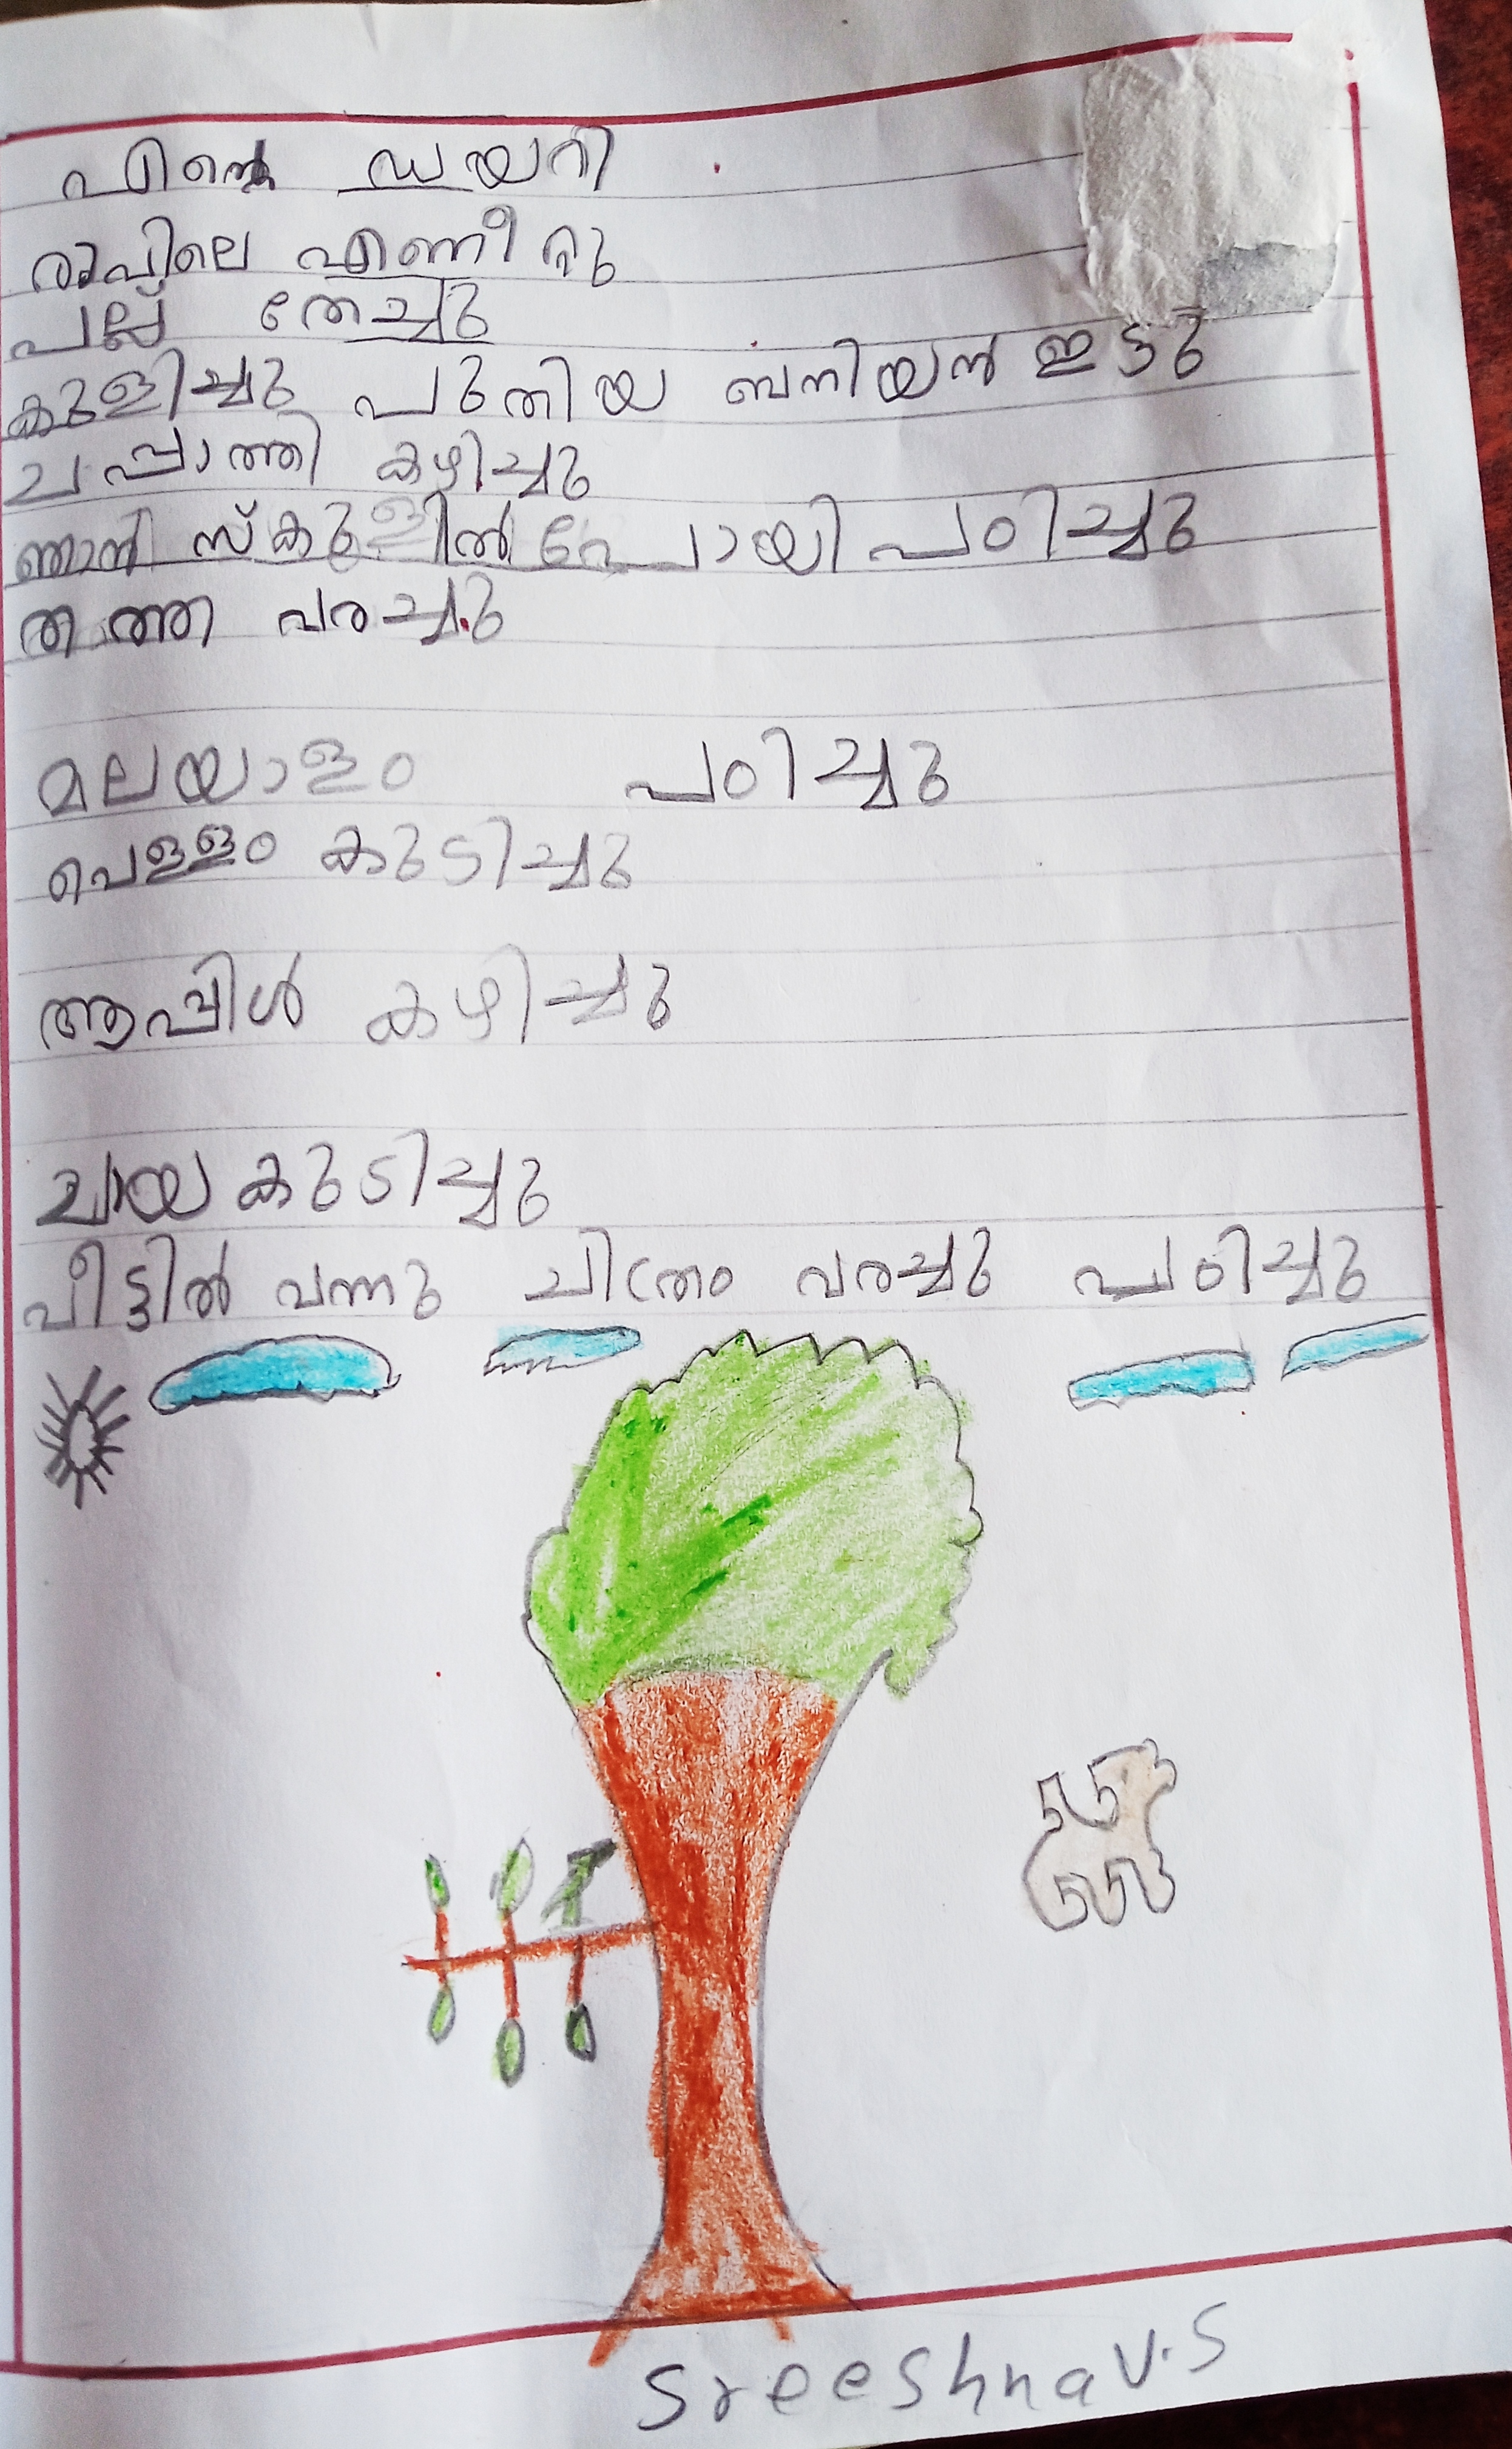 എന്റെ ഡയറി
രാവിലെ എണീറ്റു
പല്ല് തേച്ചു
കുളിച്ചു പുതിയ ബനിയൻ ഇട്ടു
ചപ്പാത്തി കഴിച്ചു
ഞാൻ സ്കുളിൽ പോയി പഠിച്ചു
തത്ത വരച്ചു
മലയാളം പഠിച്ചു
വെള്ളം കുടിച്ചു
ആപ്പിൾ കഴിച്ചു
ചായ കുടിച്ചു
വീട്ടിൽ വന്നു ചിത്രം വരച്ചു പഠിച്ചു
Sreeshna V.S